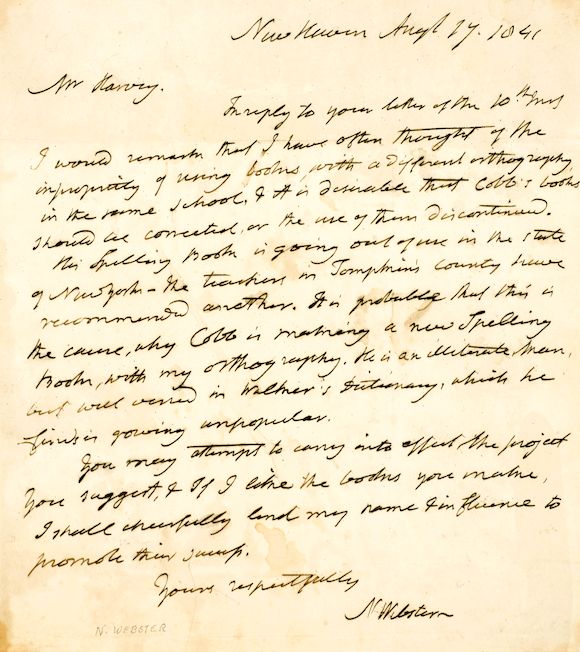 New Haven Augt 17. 1841
Mr Harvey.
In reply to your letter of the 10th inst
I would remark that I have often thought of the
impropriety of using books, with a different orthography
in the same school, & it is desirable that Cobb's books
should be corrected, or the use of them discontinued.
His Spelling Book is going out of use in the state
of New York - the teachers in Tompkins county have
recommended another. It is probable that this is
the cause, why Cobb is making a new Spelling
Book, with my orthography. He is an illiterate man,
but well versed in Walker's Dictionary, which he
finds is growing unpopular.
You may attempt to carry into effect the project
you suggest, & if I like the books you make,
I shall cheerfully lend my name & influence to
promote their
Yours respectfully
N Webster
N. WEBSTER